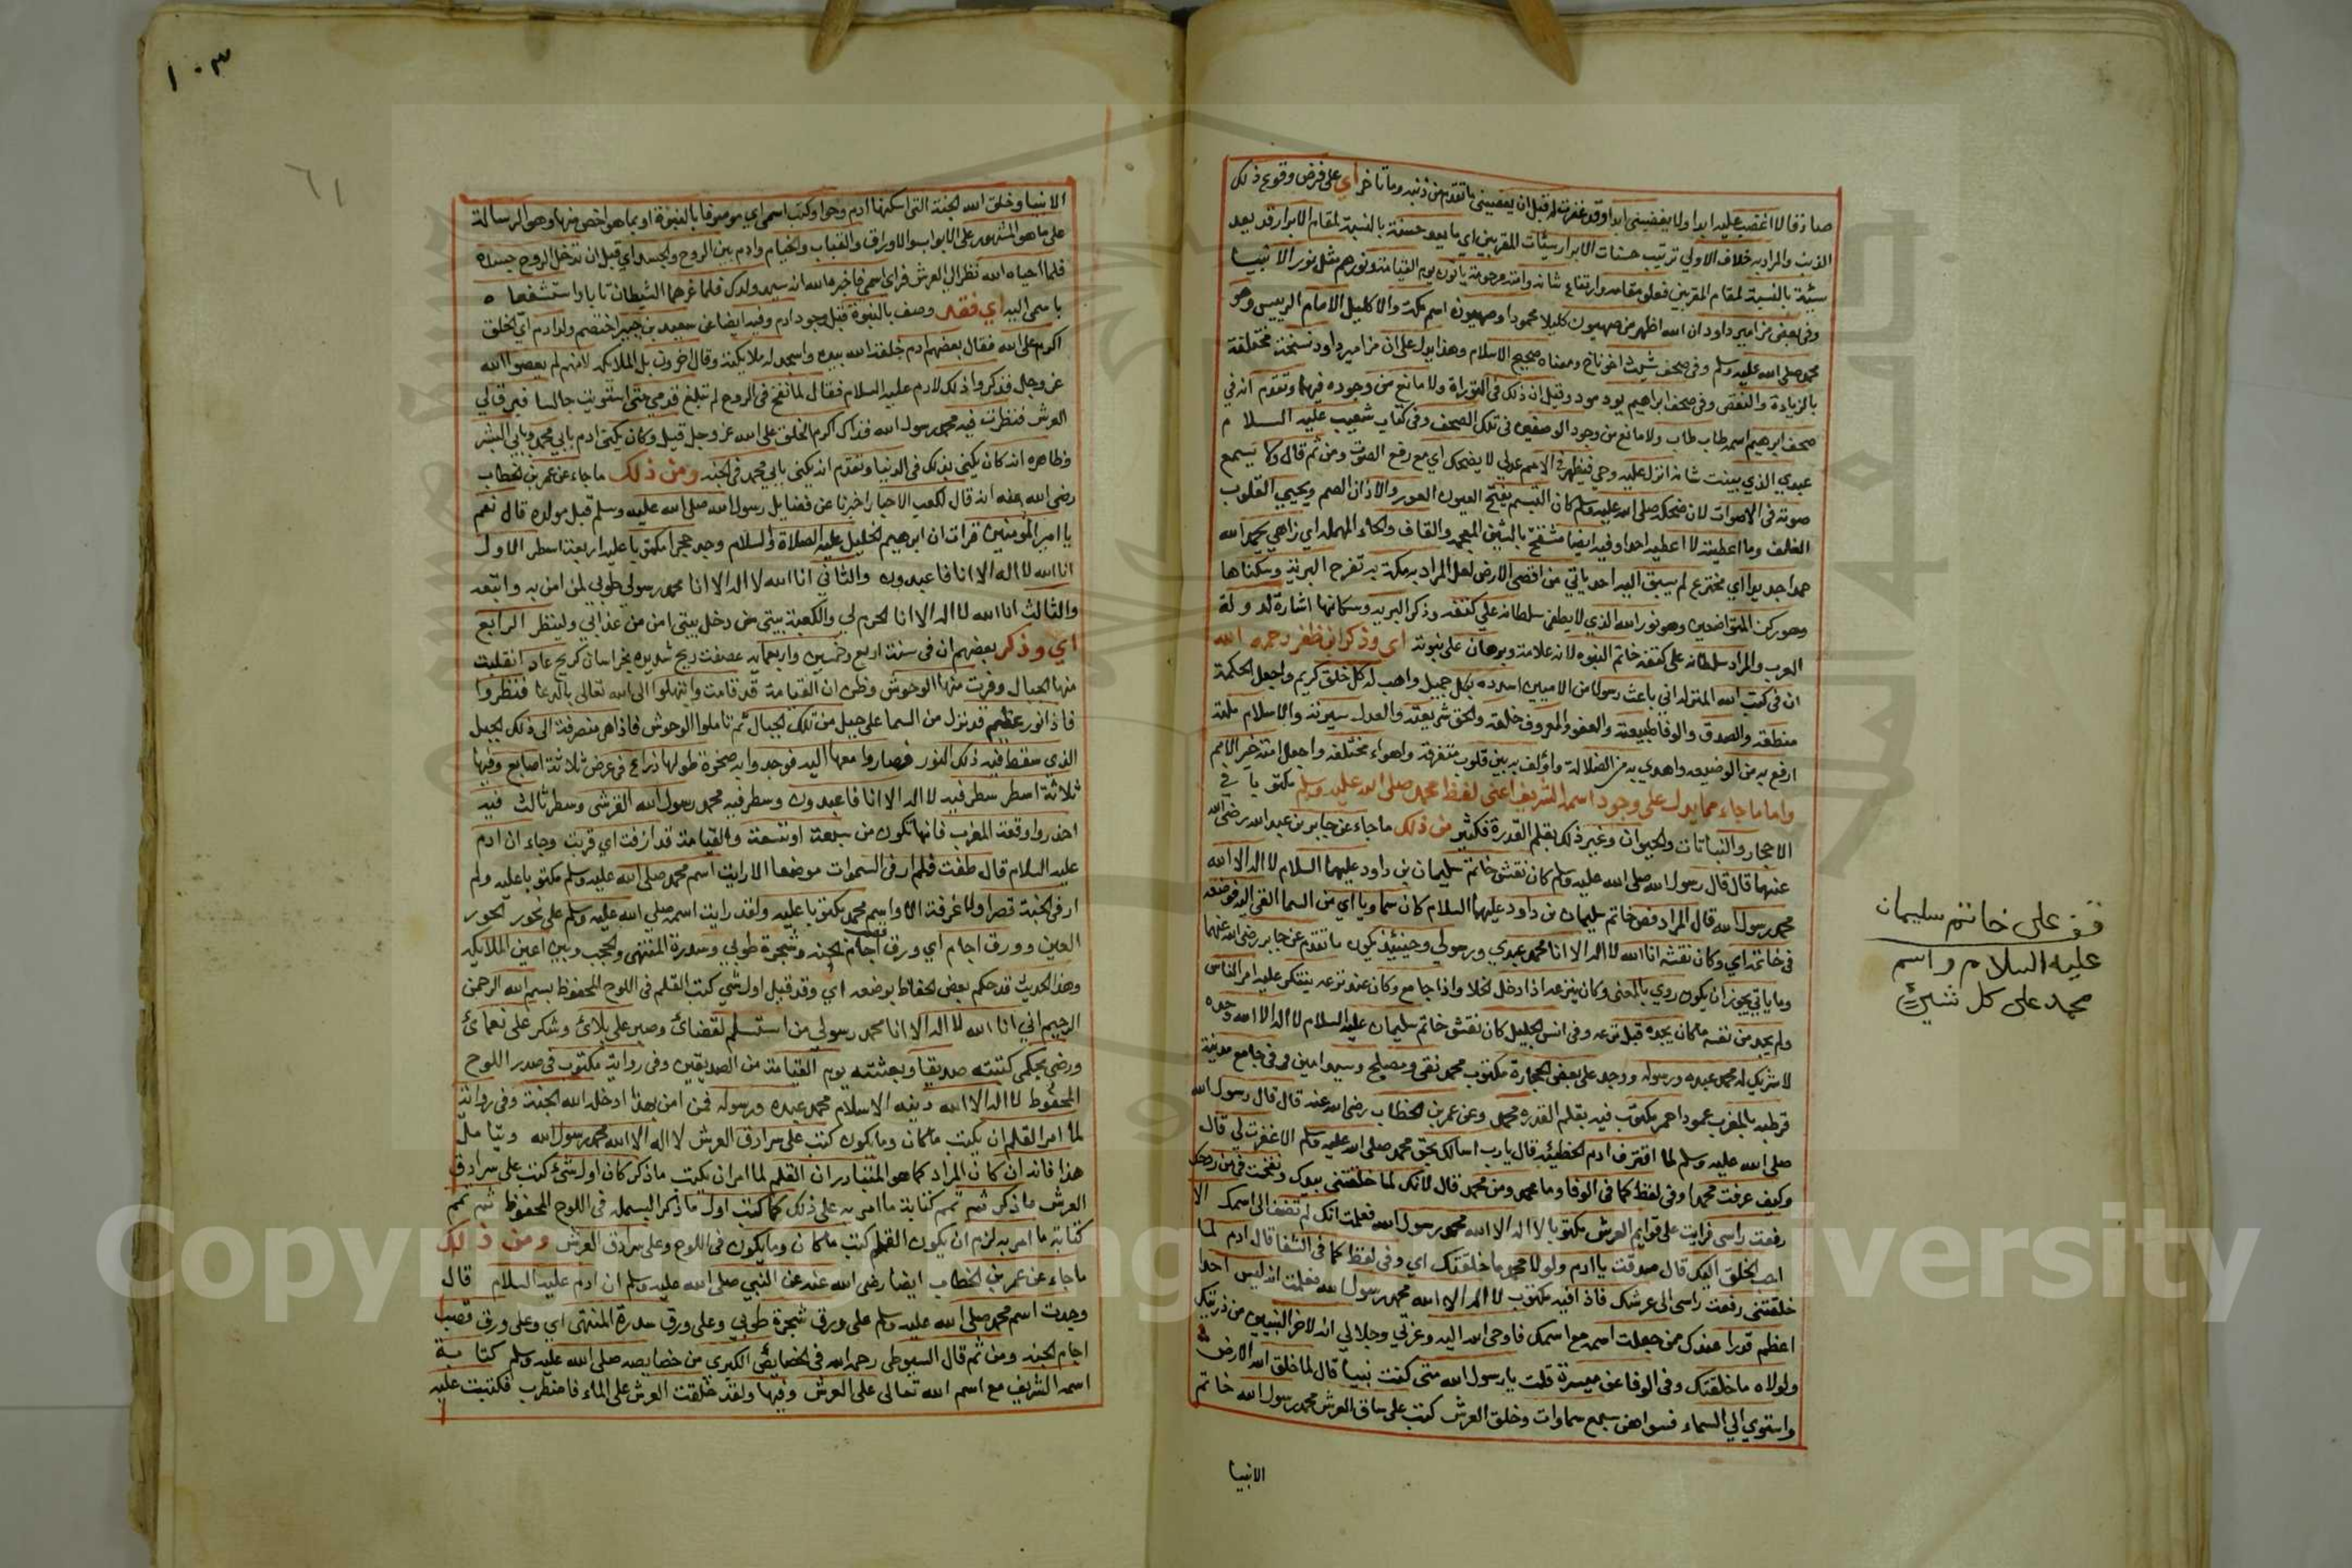 صلاة فلا اغضب عليه ابدا ولا يغضبني ابدا وقد غفرت له قبل ان يغضبني ما تقدم من ذنبه وما تاخر اي على فرض وقوع ذلك
الذنب والمراد به خلاف الاولي ترتيب حسنات الابرار سيئات المقربين اي ما يعد حسنة بالنسبة لمقام الابرار قد يعد
سيئة بالنسبة لمقام المقربين فعلو مقامه وارتفاع شانه وامته مرحومة ياتون يوم القيامة ونورهم مثل نور الانبيا
وفي بعض مزامير داود ان الله اظهر من صهيون اكليلا محمودا وصهيون اسم مكة والاكليل الامام الرييس وهو
محمد صلى الله عليه وسلم وفي صحف شيث اخوناخ ومعناه صحيح الاسلام وهذا يدل على ان مزامير داود نسخة مختلفة
بالزيادة والنقص وفي صحف ابراهيم يود مود وقيل ان ذلك في التوراة ولا مانع من وجوده فيهما وتقدم انه في
صحف ابرهيم اسمه طاب طاب ولا مانع من وجود الوصفين في تلك الصحف وفي كتاب شعيب عليه السلام
عبدي الذي يثبت شانه انزل عليه وحيي فيظهر في الامم عدلي لا يضحك اي مع رفع الصوت ومن ثم قال ولا يسمع
صوته في الاصوات لان ضحكه صلى الله عليه وسلم كان التبسم يفتح العيون العور والاذان الصم ويحيي القلوب
الغلف وما اعطيته لا اعطيه احدا وفيه ايضا مشقح بالشين المعجمة والقاف والحاء المهملة اي زاهي يحمد الله
حمدا جديدا اي مخترع لم يسبق اليه احد ياتي من اقصى الارض لعل المراد به مكة به تفرح البرية وسكناها
وهو ركن المتواضعين وهو نور الله الذي لا يطفى سلطانه على كتفه وذكر البرية وسكانها اشارة لدولة
العرب والمراد سلطانه على كتفه خاتم النبوه لانه علامة وبرهان على نبوته اي وذكر ابن ظفر رحمه الله
ان في كتب الله المنزلة اني باعث رسولا من الاميين اسدده بكل جميل واهب له كل خلق كريم واجعل الحكمة
منطقه والصدق والوفا طبيعته والعفو والمعروف خلقه والحق شريعته والعدل سيرته والاسلام ملته
ارفع به من الوضيعه واهدي به من الضلالة واؤلف به بين قلوب متفرقة واهواء مختلفه واجعل امته خير الامم
واما ما جاء مما يدل على وجود اسمه الشريف اعني لفظ محمد صلى الله عليه وسلم مكتوبا في
الاحجار والنباتات والحيوان وغير ذلك بقلم القدرة فكثير من ذلك ما جاء عن جابر بن عبد الله رضى الله
عنهما قال قال رسول الله صلى الله عليه وسلم كان نقش خاتم سليمان بن داود عليهما السلام لا اله الا الله
محمد رسول الله قال المراد فص خاتم سليمان بن داود عليهما السلام كان سماويا اي من السما القي اليه فوضعه
في خاتمه اي وكان نقشه انا الله لا اله الا انا محمد عبدي ورسولي وحينئذ يكون ما تقدم عن جابر رضى الله عنهما
وما ياتي يجوز ان يكون روي بالمعنى وكان ينزعه اذا دخل الخلا واذا جامع وكان عند نزعه يتنكر عليه امر الناس
ولم يجد من نفسه ما كان يجده قبل نزعه وفي انس الجليل كان نقش خاتم سليمان عليه السلام لا اله الا الله وحده
لا شريك له محمد عبده ورسوله ووجد على بعض الحجارة مكتوب محمد تقي ومصلح وسيد امين وفي جامع مدينة
قرطبه بالمغرب عمود احمر مكتوب فيه بقلم القدره محمد وعن عمر بن الخطاب رضى الله عنه قال قال رسول الله
صلى الله عليه وسلم لما اقترف ادم الخطيئه قال يارب اسالك بحق محمد صلى الله عليه وسلم الا غفرت لي قال
وكيف عرفت محمدا وفي لفظ كما في الوفا وما محمد ومن محمد قال لانك لما خلقتني بيدك ونفخت في من روحك
رفعت راسي فرايت على قوايم العرش مكتوبا لا اله الا الله محمد رسول الله فعلمت انك لم تضف الى اسمك الا
احب الخلق اليك قال صدقت ياادم ولولا محمد ما خلقتك اي وفي لفظ كما في الشفا قال ادم لما
خلقتني رفعت راسي الى عرشك فاذا فيه مكتوب لا اله الا الله محمد رسول الله فعلمت انه ليس احد
اعظم قدرا عندك ممن جعلت اسمه مع اسمك فاوحى الله اليه وعزتي وجلالي انه لاخر النبيين من ذريتك
ولولاه ما خلقتك وفي الوفا عن ميسرة قلت يارسول الله متى كنت نبيا قال لما خلق الله الارض
واستوي الي السماء فسواهن سبع سماوات وخلق العرش كتب على ساق العرش محمد رسول الله خاتم
الانبيا
قف على خاتم سليمان
عليه السلام واسم
محمد على كل شيئ
١٠٣
٦١
الانبيا وخلق الله الجنة التي اسكنها ادم وحوا وكتب اسمي اي موصوفا بالنبوة او بما هو اخص منها وهو الرسالة
على ما هو المشهور على الابواب والاوراق والقباب والخيام وادم بين الروح والجسد اي قبل ان تدخل الروح جسده
فلما احياه الله نظر الى العرش فراى اسمي فاخبره الله انه سيد ولدك فلما غرهما الشيطان تابا واستشفعا
باسمى اليه اي فقد وصف بالنبوة قبل وجود ادم وفيه ايضا عن سعيد بن جبير اختصم ولد ادم اي الخلق
اكرم على الله فقال بعضهم ادم خلقه الله بيده واسجد له ملايكته وقال اخرون بل الملايكه لانهم لم يعصوا الله
عز وجل فذكروا ذلك لادم عليه السلام فقال لما نفخ في الروح لم تبلغ قدمي حتى استويت جالسا فبرق لي
العرش فنظرت فيه محمد رسول الله فذاك اكرم الخلق على الله عز وجل قيل وكان يكنى ادم بابي محمد وبابي البشر
وظاهره انه كان يكنى بذلك في الدنيا وتقدم انه يكنى بابي محمد في الجنه ومن ذلك ما جاء عن عمر بن الخطاب
رضى الله عنه انه قال لكعب الاحبار اخبرنا عن فضايل رسول الله صلى الله عليه وسلم قبل مولده قال نعم
يا امير المؤمنين قرات ان ابرهيم الخليل عليه الصلاة والسلام وجد حجرا مكتوبا عليه اربعة اسطر الاول
انا الله لا اله الا انا فاعبدون والثاني انا الله لا اله الا انا محمد رسولي طوبي لمن امن به واتبعه
والثالث انا الله لا اله الا انا الحرم لي والكعبة بيتي من دخل بيتي امن من عذابي ولينظر الرابع
اي وذكر بعضهم ان في سنة اربع وخمسين واربعمايه عصفت ريح شديده بخراسان كريح عاد انقلبت
منها الجبال وفرت منها الوحوش وظن ان القيامة قد قامت وابتهلوا الى الله تعالى بالدعا فنظروا
فاذا نور عظيم قد نزل من السما على جبل من تلك الجبال ثم تاملوا الوحوش فاذا هى منصرفة الى ذلك الجبل
الذي سقط فيه ذلك النور فصاروا معها اليه فوجدوا به صخرة طولها ذراع في عرض ثلاثة اصابع وفيها
ثلاثة اسطر سطر فيه لا اله الا انا فاعبدون وسطر فيه محمد رسول الله القرشي وسطر ثالث فيه
احذروا وقعة المغرب فانها تكون من سبعة او تسعة والقيامة قد ازفت اي قربت وجاء ان ادم
عليه السلام قال طفت فلم ار في السموات موضعا الا رايت اسم محمد صلى الله عليه وسلم مكتوبا عليه ولم
ار في الجنة قصرا ولا غرفة الا واسم محمد مكتوبا عليه ولقد رايت اسمه صلى الله عليه وسلم على نحور الحور
العين وورق اجام اي ورق قصب اجام الجنه وشجرة طوبي وسدرة المنتهى والحجب وبين اعين الملايكه
وهذا الحديث قد حكم بعض الحفاظ بوضعه اي وقد قيل اول شي كتب القلم في اللوح المحفوظ بسم الله الرحمن
الرحيم اني انا الله لا اله الا انا محمد رسولي من استسلم لقضائ وصبر على بلائ وشكر على نعمائ
ورضي بحكمي كتبته صديقا وبعثته يوم القيامة من الصديقين وفي رواية مكتوب في صدر اللوح
المحفوظ لا اله الا الله دينه الاسلام محمد عبده ورسوله فمن امن بهذا ادخله الله الجنة وفي رواية
لما امر القلم ان يكتب ما كان وما يكون كتب على سرادق العرش لا اله الا الله محمد رسول الله ويتامل
هذا فانه ان كان المراد كما هو المتبادر ان القلم لما امر ان يكتب ما ذكر كان اول شئ كتب على سرادق
العرش ما ذكر ثم تمم كتابة ما امر به على ذلك كما كتب اول ما ذكر البسمله في اللوح المحفوظ ثم تمم
كتابة ما امر به لزم ان يكون القلم كتب ما كان وما يكون في اللوح وعلى سرادق العرش ومن ذلك
ما جاء عن عمر بن الخطاب ايضا رضى الله عنه عن النبي صلى الله عليه وسلم ان ادم عليه السلام قال
وجدت اسم محمد صلى الله عليه وسلم على ورق شجرة طوبي وعلى ورق سدرة المنتهى اي وعلى ورق قصب
اجام الجنه ومن ثم قال السيوطي رحمه الله في الخصايص الكبرى من خصايصه صلى الله عليه وسلم كتابة
اسمه الشريف مع اسم الله تعالى على العرش وفيها ولقد خلقت العرش على الماء فاضطرب فكتبت عليه
Copyright © King Saud University